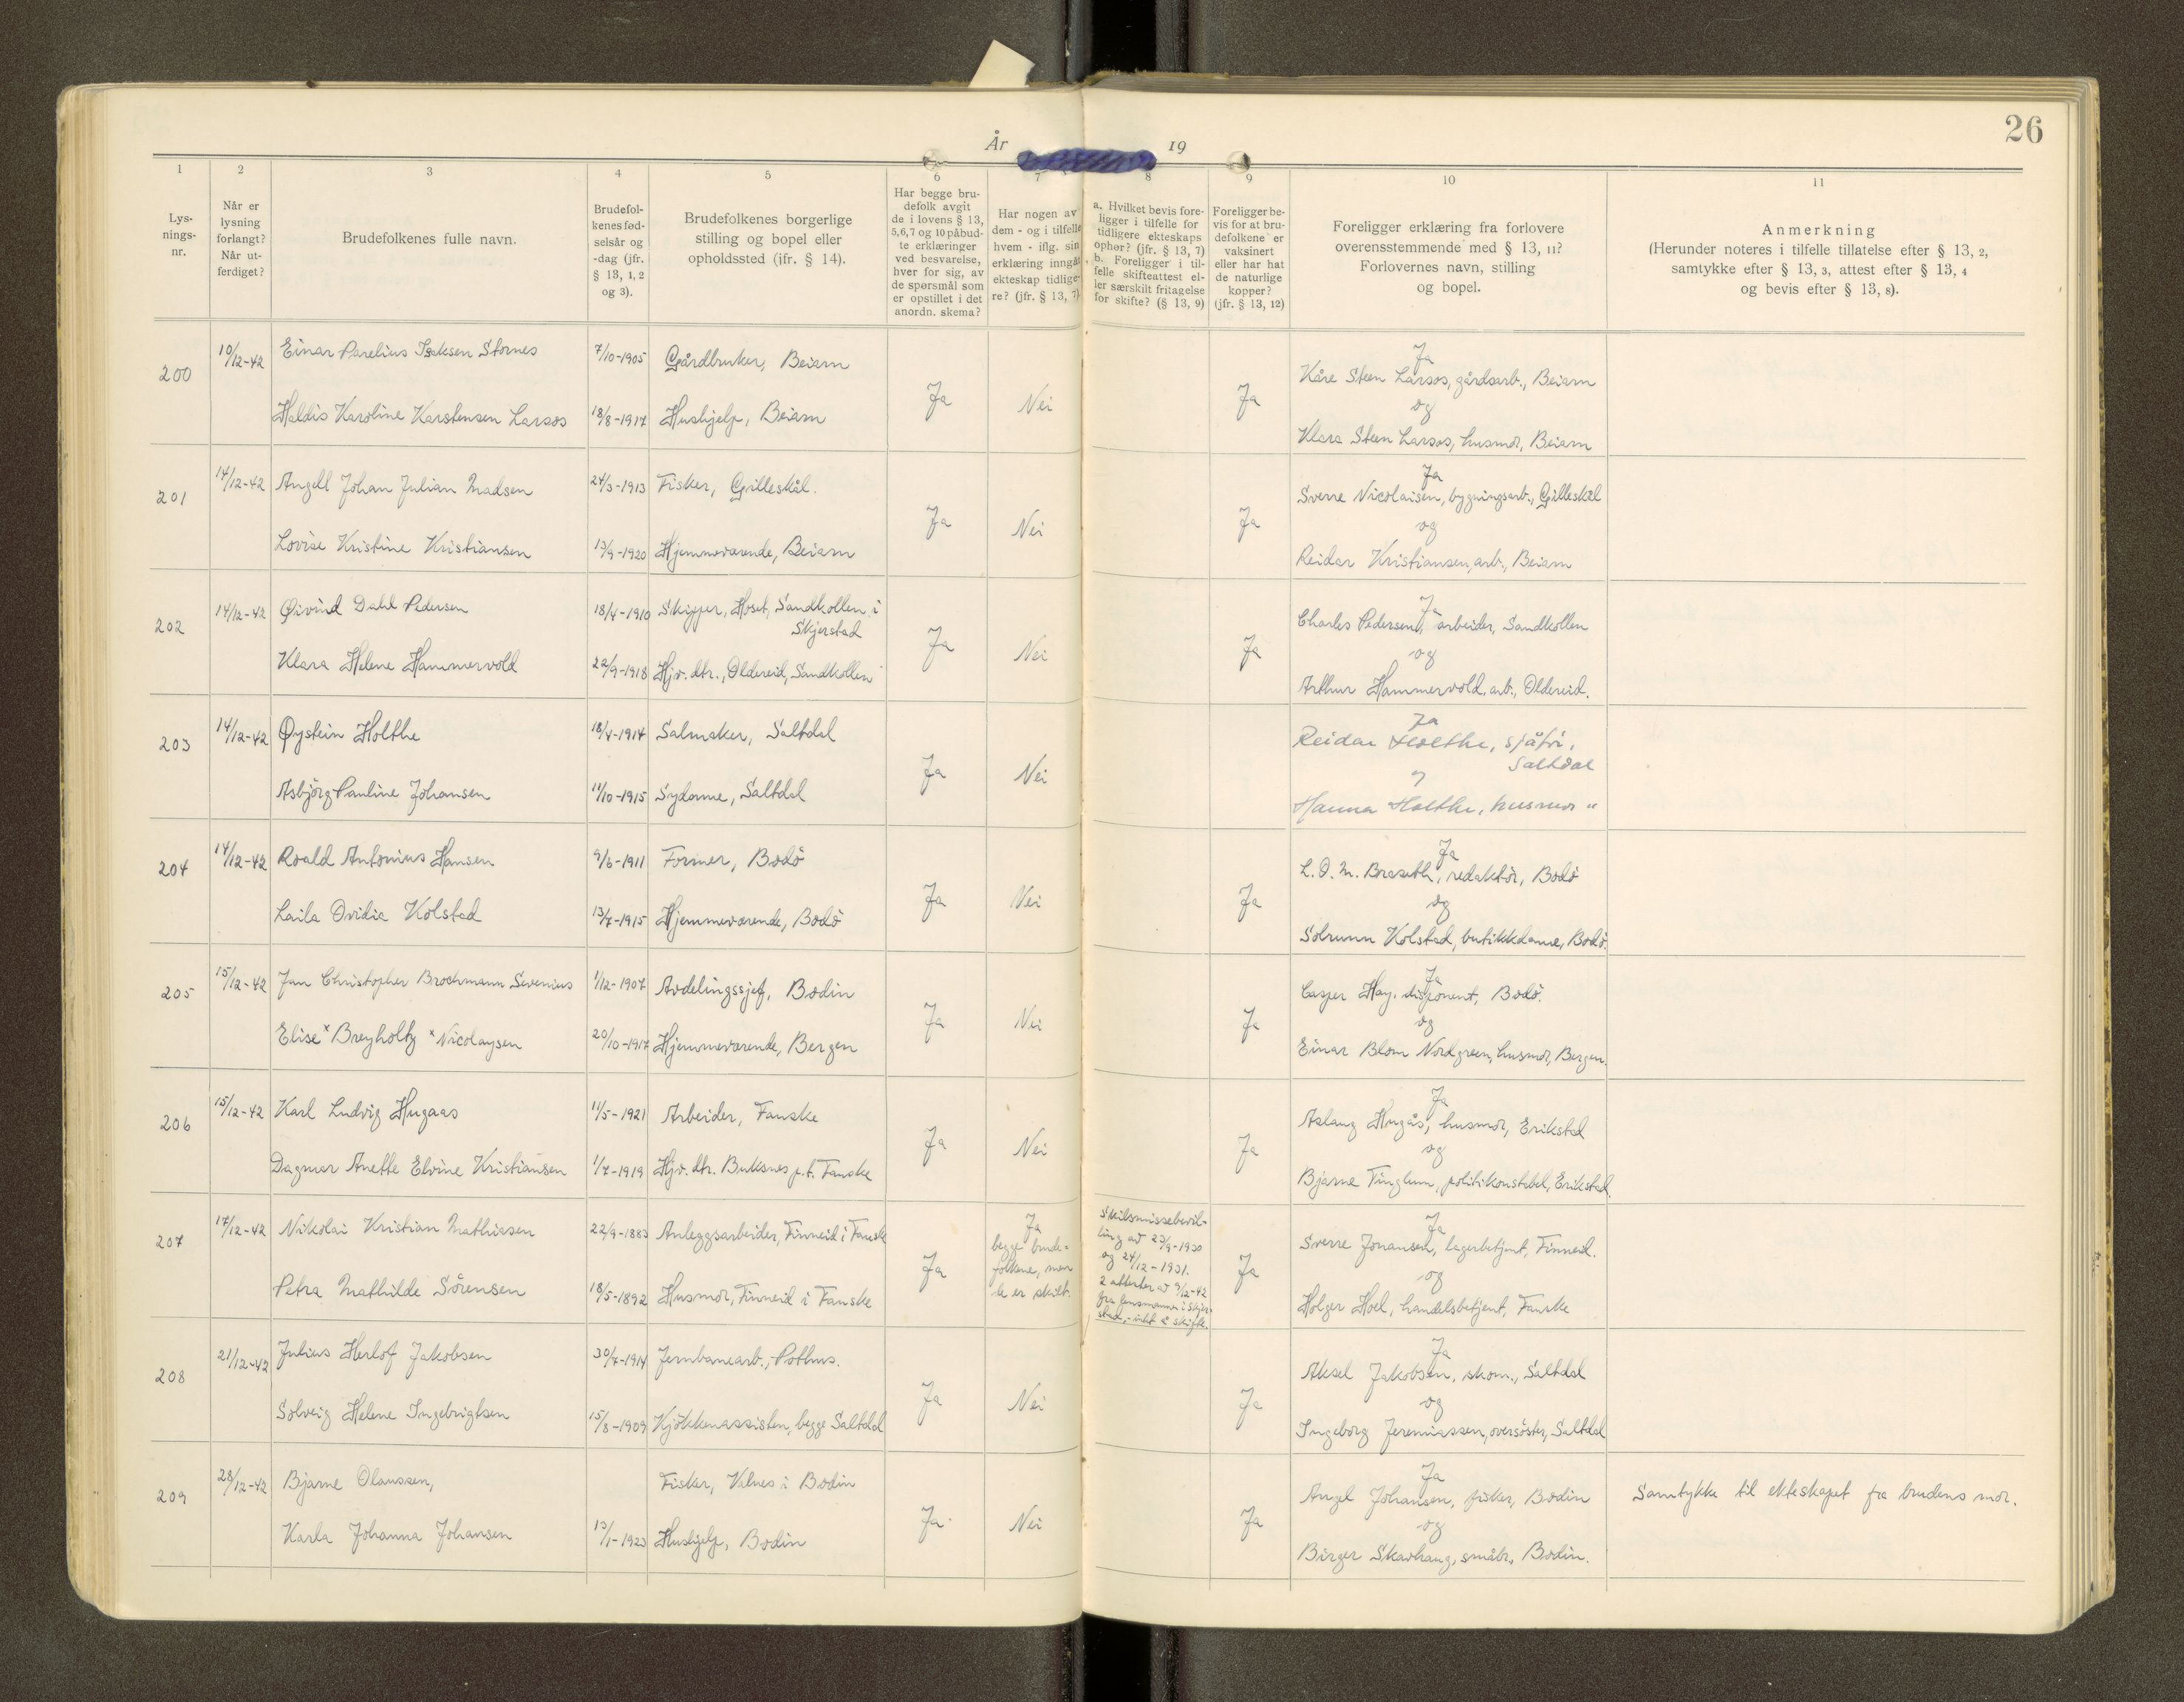 26
År 19
1 2 3 4 5 6 7 8 9 10 11
Lys-
nings-
nr.
Når er
lysning
forlangt?
Når ut-
ferdiget?
Brudefolkenes fulle navn.
Brudefol-
kenes fød-
selsår og
-dag (jfr.
§ 13, 1, 2
og 3).
Brudefolkenes borgerlige
stilling og bopel eller
opholdssted (ifr. § 14).
Har begge bru-
defolk avgit
de i lovens § 13,
5, 6, 7 og 10 påbud-
te erklæringer
ved besvarelse,
hver for sig, av
de spørsmål som
er opstillet i det
anordn. skema?
Har nogen av
dem - og i tilfelle
hvem - iflg. sin
erklæring inngåt
ekteskap tidlige-
re? (jfr. § 13, 7)
a. Hvilket bevis fore-
ligger i tilfelle for
tidligere ekteskaps
ophør? (jfr. § 13, 7)
b. Foreligger i til-
felle skifteattest el-
ler særskilt fritagelse
for skifte? (§ 13, 9)
Foreligger be-
vis for at bru-
defolkene er
vaksinert
eller har hat
de naturlige
kopper?
(jfr. § 13, 12)
Foreligger erklæring fra forlovere
overensstemmende med § 13, 11?
Forlovernes navn, stilling
og bopel.
Anmerkning
(Herunder noteres i tilfelle tillatelse efter § 13, 2,
samtykke efter § 13, 3, attest efter § 13, 4
og bevis efter § 13, 8).
200 10/12-42 Einar Parelius Isaksen Stornes 7/10-1905 Gårdbruker, Beiarn
Haldis Karoline Karstensen Larsos 18/8-1917 Hushjelp, Beiarn
Ja Nei Ja
Ja
Kåre Steen Larsos, gårdsarb., Beiarn
og
Klara Steen Larsos, husmor, Beiarn
201 14/12-42 Angell Johan Julian Madsen 24/3-1913 Fisker, Gilleskål.
Lovise Kristine Kristiansen 13/9-1920 Hjemmeværende, Beiarn
Ja Nei Ja
Ja
Sverre Nicolaisen, bygningsarb., Gilleskål
og
Reidar Kristiansen, arb., Beiarn
202 14/12-42 Øivind Dahl Pedersen 18/4-1910 Skipper, Hoset, Sandkollen i
Skjerstad
Klara Helene Hammervold 22/9-1918 Hjv. dtr., Oldereid, Sandkollen
Ja Nei Ja
Ja
Charles Pedersen, arbeider, Sandkollen
og
Arthur Hammervold, arb., Oldereid.
203 14/12-42 Øystein Holthe 18/4-1914 Salmaker, Saltdal
Asbjörg Pauline Johansen 11/10-1915 Sydame, Saltdal
Ja Nei
Ja
Reidar Holthe, sjåför,
Saltdal
og
Hanna Holthe, husmor "
204 14/12-42 Roald Antonius Hansen 9/6-1911 Former, Bodö
Laila Ovidia Kolstad 13/7-1915 Hjemmeværende, Bodö
Ja Nei Ja
Ja
L. O. M. Braseth, redaktör, Bodö
og
Solrunn Kolstad, butikkdame, Bodö.
205 15/12-42 Jan Christopher Brochmann Sivenius 1/12-1907 Avdelingssjef, Bodin
Elise x Breyholtz x Nicolaysen 20/10-1917 Hjemmeværende, Bergen
Ja Nei Ja
Ja
Casper Hay. disponent, Bodö.
og
Einar Blom Nordgreen, husmor, Bergen.
206 15/12-42 Karl Ludvig Hugaas 11/5-1921 Arbeider, Fauske
Dagmar Anette Elvine Kristiansen 1/7-1919 Hjv. dtr. Buksnes p.t. Fauske
Ja Nei Ja
Ja
Aslaug Hugås, husmor, Erikstad
og
Bjarne Tinglum, politikonstabel, Erikstad.
207 17/12-42 Nikolai Kristian Mathiasen 22/9-1883 Anleggsarbeider, Finneid i Fauske
Petra Mathilde Sörensen 18/5-1892 Husmor, Finneid i Fauske
Ja
Ja
begge brude-
folkene, men
de er skilt.
Skilsmissebevil-
ling av 23/9-1930
og 24/12-1931.
2 attester av 9/12-42
fra lensmannen i Skjer-
stad, - intet å skifte.
Ja
Ja
Sverre Johansen, lagerbetjent, Finneid.
og
Holger Hoel, handelsbetjent, Fauske
208 21/12-42 Julius Herlof Jakobsen 30/7-1914 Jernbanearb., Pothus.
Solveig Helene Ingebrigtsen 15/8-1909 Kjökkenassisten, begge Saltdal
Ja Nei Ja
Ja
Aksel Jakobsen, skom., Saltdal
og
Ingeborg Jeremiassen, oversöster, Saltdal
209 28/12-42 Bjarne Olaussen, Fisker, Valnes i Bodin
Karla Johanna Johansen 13/1-1923 Hushjelp, Bodin
Ja Nei Ja
Ja
Angel Johansen, fisker, Bodin
og
Birger Skavhaug, småbr. Bodin.
Samtykke til ekteskapet fra brudens mor.